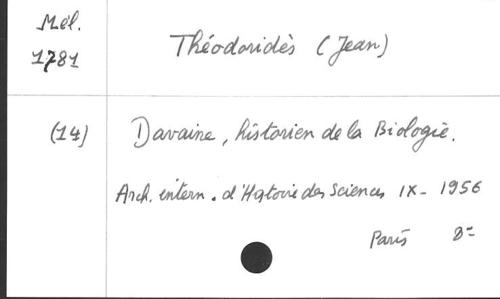 Mél.
1781
Théodoridès (Jean)
(14)
Davaine, historien de la Biologie.
Arch. intern. d'Histoire des Sciences IX - 1956
Paris 8=